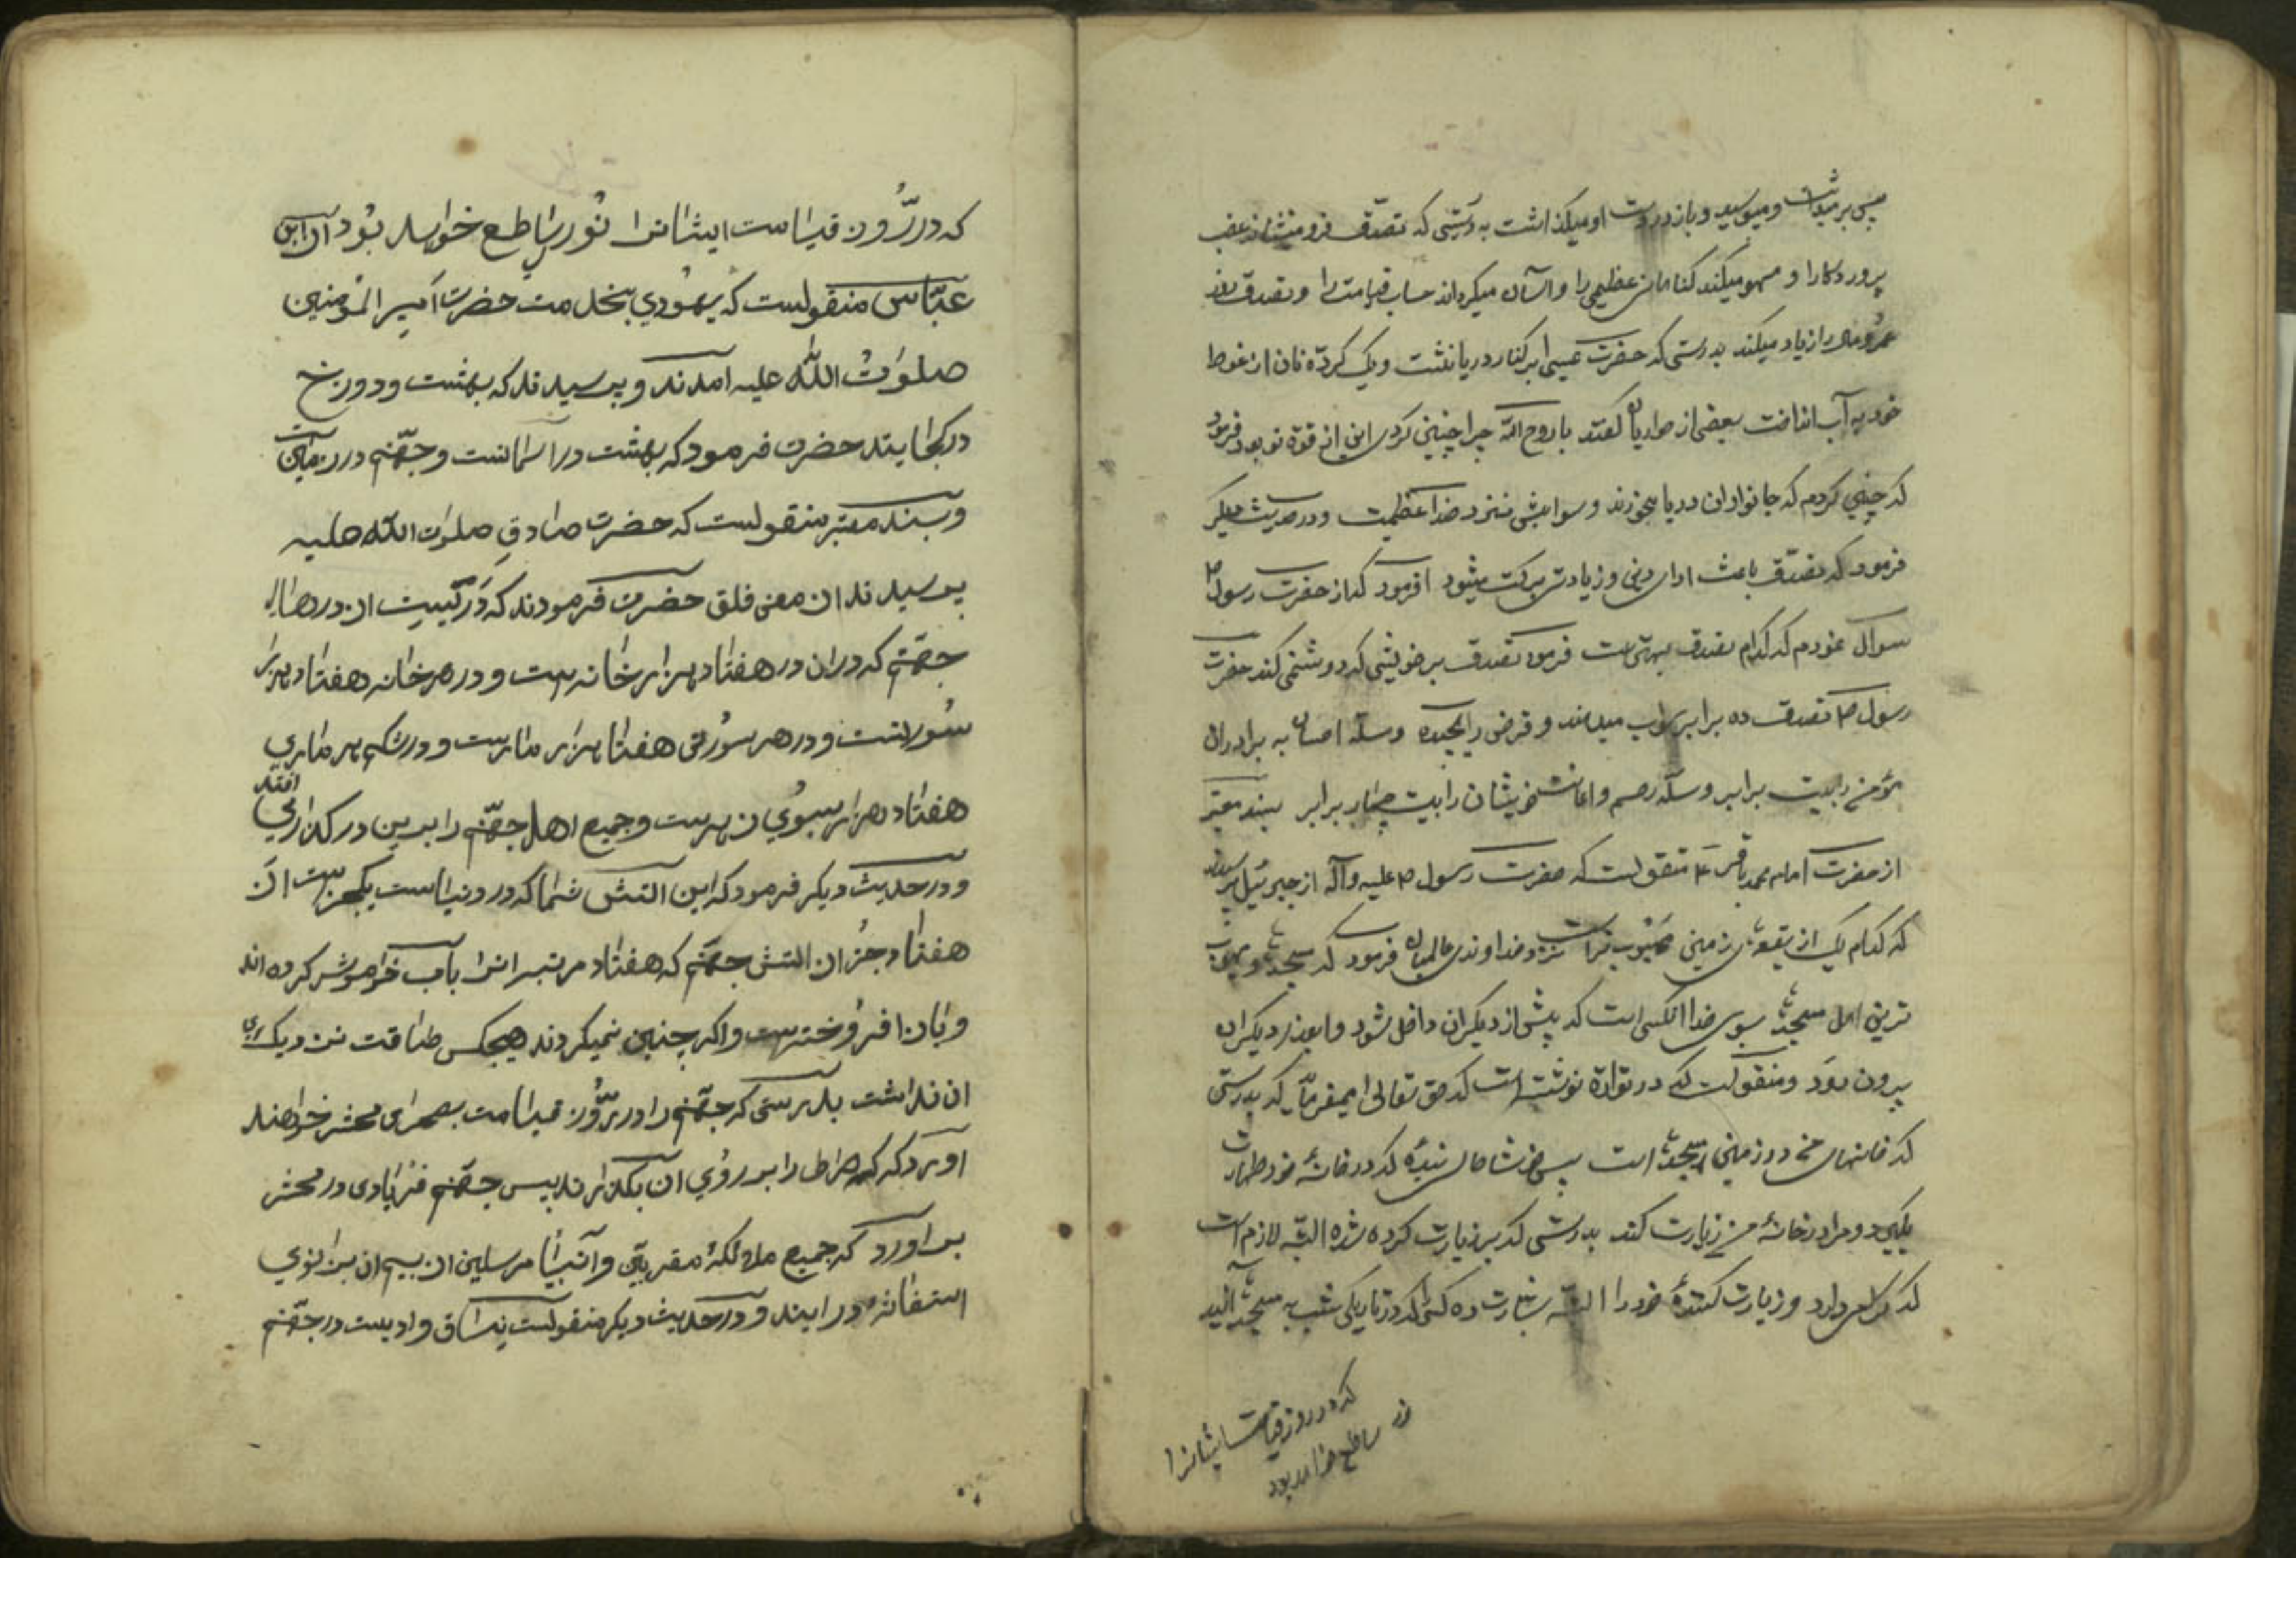 پس بر میداشت و میبوسید و باز در دست او میگذاشت به درستی که تصدّق فرو مینشاند غضب
پروردکارا و محو میکند کناهان عظیمی را و آسان میکرداند حساب قیامت را و تصدق روز
عمر و مال را زیاد میکند بدرستی که حضرت عیسی بر کنار دریا نشست و یک کرده نان از غوط
خود به آب انداخت بعضی از حواریان گفتند یا روح الله چرا چنین کردی این از قوة تو بود فرمود
که چنین کردم که جانوران دریا بخورند و ثوابش نزد خدا عظیمست و در حدیث دیگر
فرمود که تصدّق باعث ادای دین و زیادتی برکت میشود و فرمود که از حضرت رسول ص
سوال نمودم که کدام تصدق بهترست فرمود تصدق بر خویشی که دشمنی کند حضرت
رسول ص تصدق ده برابر ثواب میدهند و قرض را هیجده و صله احسان به برادران
مؤمن را بیست برابر و صله رحم و اعانت خویشان را بیست چهار برابر بسند معتبر
از حضرت امام محمد باقر ع منقولست که حضرت رسول ص علیه و آله از جبرئیل پرسیدند
که کدام یک از بقعهای زمین محبوب تراست نزد خداوندی عالمیان فرمود که مسجدها و محبوب
ترین اهل مسجدها بسوی خدا آنکسی است که پیش از دیگران داخل شود و بعد از دیگران
بیرون رود و منقولست که در توراة نوشته است که حق تعالی میفرماید که بدرستی
که خانهای من در زمین مسجدها است پس خوشا حال بنده که در خانهٔ خود طهارت
بکیرد و مرا در خانهٔ من زیارت کند بدرستی که بر زیارت کرده شده البته لازم است
که کرامی دارد و زیارت کنندهٔ خود را البته بشارت ده کسی را که در تاریکی شب به مسجدها آیند
که در روز قیامت ایشانرا
نور ساطع خواهد بود
که در رُوز قیامت ایشانرا نُور ساطع خواهد بُود از ابن
عبّاس منقولست که یهُودی بخدمت حضرت اَمیر المؤمنین
صلوٰتُ اللّه علیه امدند و پرسیدند که بهشت و دوزخ
در کجایند حضرت فرمود که بهشت در آسمانست و جهّنم در زمین
و بسند معتبر منقولست که حضرت صادق صلوٰت اللّه علیه
پرسیدند از معنی فلق حضرت فرمودند که دَرّکیست از درهای
جهّنم که دران در هفتاد هزار خانه است و در هر خانه هفتاد هزار
سُوراخست و در هر سورخی هفتاد هزار مارست و در شکم هر ماری
هفتاد هزار سبوُی زهرست و جمیع اهل جهّنم را بدین در کذار می افتد
و در حدیث دیکر فرمود که این اتش شما که در دنیاست یکجزست از
هفتاد جزُ از اتش جهّنم که هفتاد مرتبه انرا بآب خاموش کرده اند
و باز افرُوخته است و اکر چنین نمیکردند هیچکس طاقت نزدیکی
ان نداشت بدرستی که جهّنم را در رُوز قیامت بصحرای محشر خواهند
اورد که صراط را بر روُی ان بکذارند پس جهّنم فریادی در محشر
بر اورد که جمیع ملائکهٔ مقربین و اَنبیا مرسلین از بیم ان بزانوی
استغاثه در ایند و در حدیث دیکر منقولست غساق وادیست در جهّنم